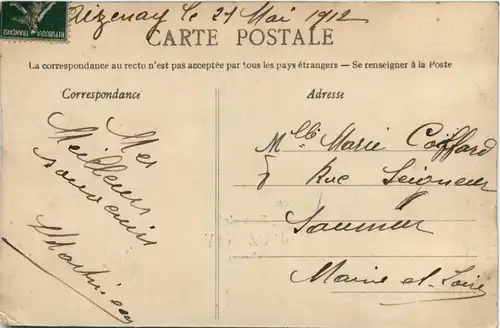 Aizenay le 21 Mai 1912
CARTE POSTALE
La correspondance au recto n'est pas acceptée par tous les pays étrangers — Se renseigner à la Poste
Correspondance
Mes
Meilleurs
souvenirs
Adresse
Mlle Marie Coiffard
Rue Seigneur
Saumur
Maine-et-Loire